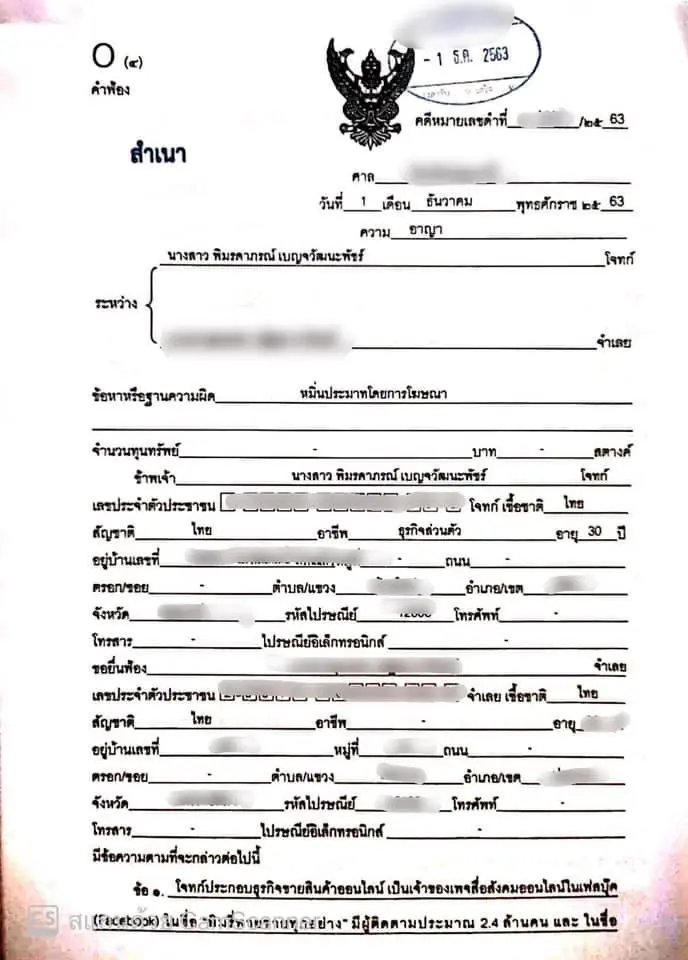 O (๔)
คำฟ้อง
- 1 ธ.ค. 2563
คดีหมายเลขดำที่ /๒๕ 63
สำเนา
ศาล
วันที่ 1 เดือน ธันวาคม พุทธศักราช ๒๕ 63
ความ อาญา
นางสาว พิมรดาภรณ์ เบญจวัฒนะพัชร์ โจทก์
ระหว่าง
จำเลย
ข้อหาหรือฐานความผิด หมิ่นประมาทโดยการโฆษณา
จำนวนทุนทรัพย์ - บาท - สตางค์
ข้าพเจ้า นางสาว พิมรดาภรณ์ เบญจวัฒนะพัชร์ โจทก์
เลขประจำตัวประชาชน โจทก์ เชื้อชาติ ไทย
สัญชาติ ไทย อาชีพ ธุรกิจส่วนตัว อายุ 30 ปี
อยู่บ้านเลขที่ - ถนน -
ตรอก/ซอย - ตำบล/แขวง อำเภอ/เขต
จังหวัด รหัสไปรษณีย์ โทรศัพท์ -
โทรสาร - ไปรษณีย์อิเล็กทรอนิกส์ -
ขอยื่นฟ้อง จำเลย
เลขประจำตัวประชาชน จำเลย เชื้อชาติ ไทย
สัญชาติ ไทย อาชีพ - อายุ
อยู่บ้านเลขที่ หมู่ที่ ถนน -
ตรอก/ซอย - ตำบล/แขวง อำเภอ/เขต
จังหวัด รหัสไปรษณีย์ โทรศัพท์ -
โทรสาร - ไปรษณีย์อิเล็กทรอนิกส์ -
มีข้อความตามที่จะกล่าวต่อไปนี้
ข้อ ๑. โจทก์ประกอบธุรกิจขายสินค้าออนไลน์ เป็นเจ้าของเพจสื่อสังคมออนไลน์ในเฟสบุ๊ค
(Facebook) ในชื่อ "พิมรี่พายขายทุกอย่าง" มีผู้ติดตามประมาณ 2.4 ล้านคน และ ในชื่อ
CS สแกนด้วย CamScanner